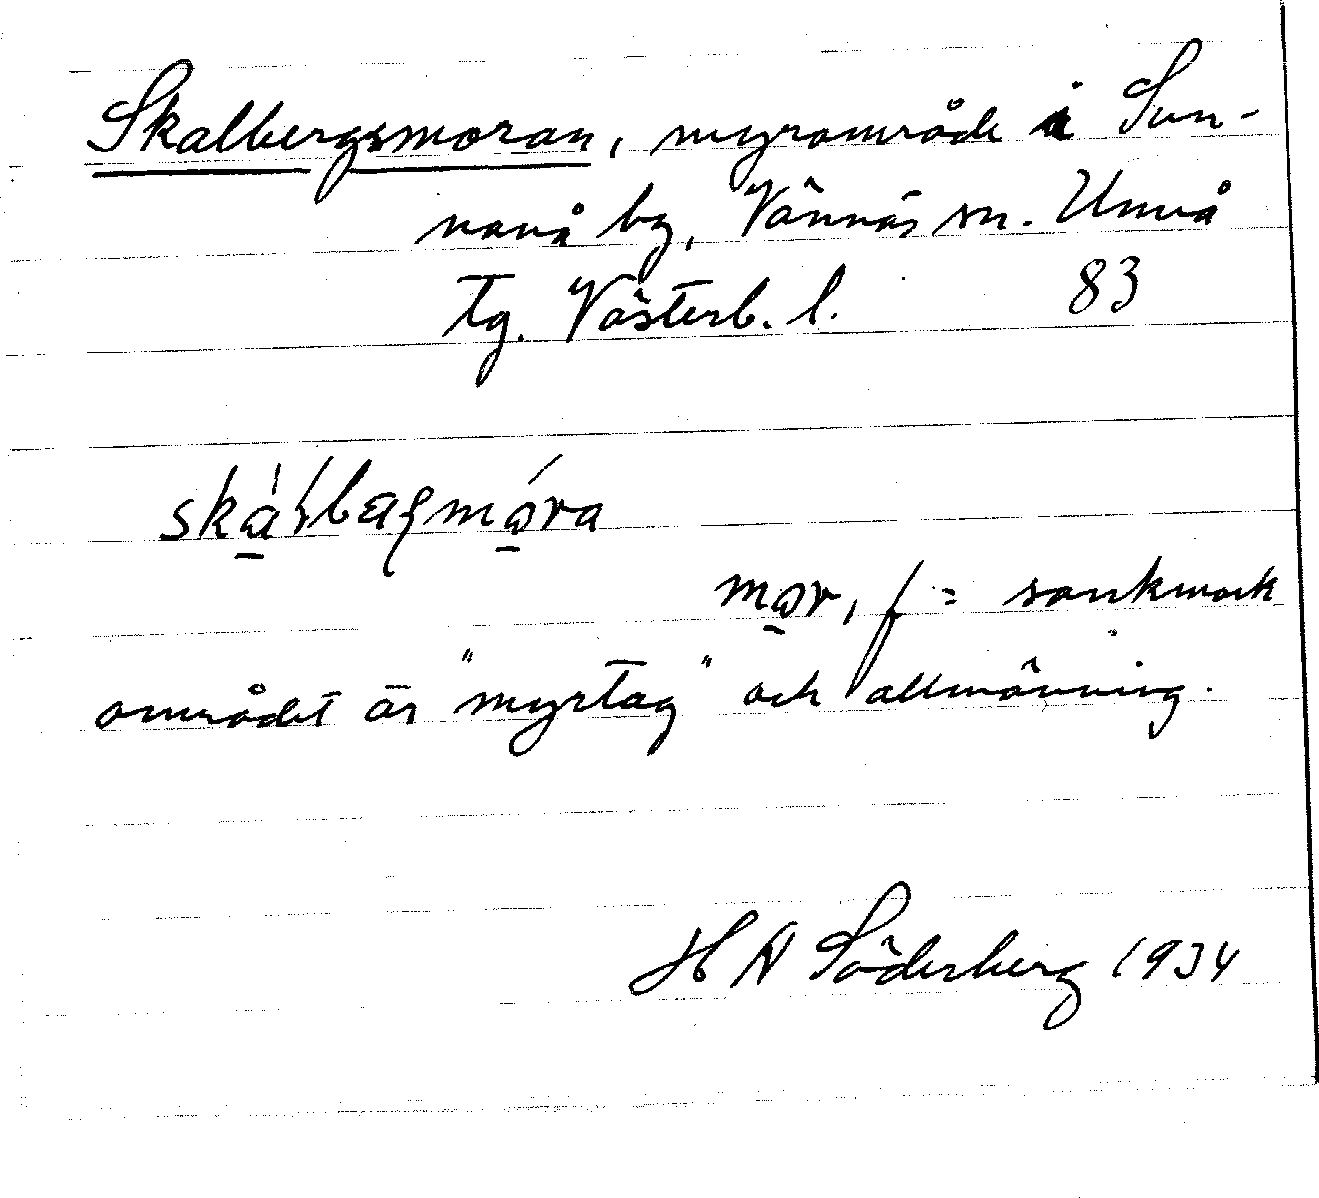 Skalbergsmoran, myrområde i Sun-
nanå by, Vännäs sn. Umeå
tg. Västerb. l. 83
mor, f = sankmark
området är "myrtag" och allmänning.
H N Söderberg 1934